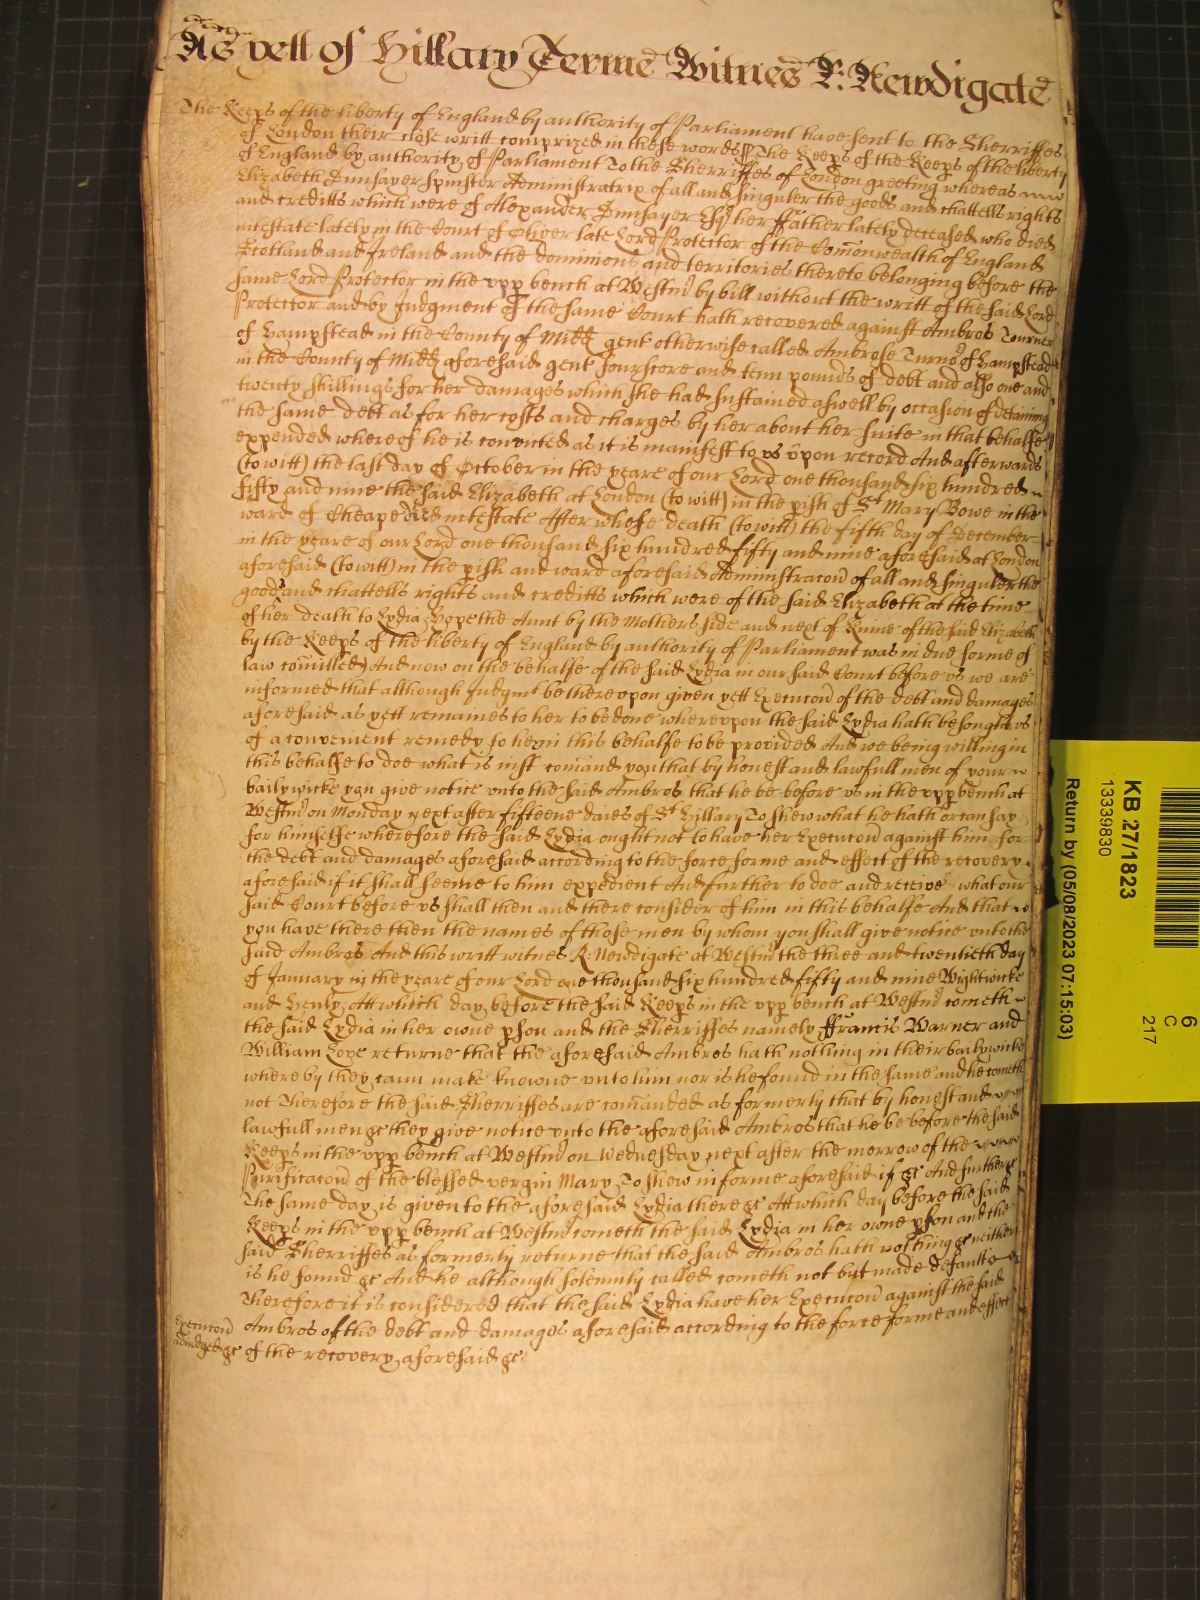 As yett of Hillary Terme Witnes R: Newdigate
The Keeps of the liberty of England by authority of Parliament have sent to the Sherriffes
of London their close writt comprized in these words The Keeps of the Keeps of the liberty
of England by authority of Parliament To the Sherriffes of London greeting whereas
Elizabeth Spinster Administratrix of all and singuler the goods and chattells rights
and creditts which were of Alexander Esqr her ffather lately deceased who died
intestate lately in the Court of Oliver late Lord Protector of the Comonwealth of England
Scotland and Ireland and the dominions and territories thereto belonging before the
same Lord Protector in the upp bench at Westmr by bill without the writt of the said Lord
Protector and by Judgment of the same Court hath recovered against Ambros Turner
of Hampstead in the County of Midd gent otherwise called Ambrose Turnor of Hampstead
in the County of Midd aforesaid gent fourscore and tenn pounds of debt and also one and
twenty shillings for her damages which she had sustained aswell by occasion of detaining
the same debt as for her costs and charges by her about her suite in that behalfe
expended whereof he is convicted as it is manifest to us upon record And afterwards
(to witt) the last day of October in the yeare of our Lord one thousand six hundred
fifty and nine the said Elizabeth at London (to witt) in the pish of St Mary Bowe in the
ward of Cheape died intestate After whose death (to witt) the fifth day of December
in the yeare of our Lord one thousand six hundred fifty and nine aforesaid at London
aforesaid (to witt) in the pish and ward aforesaid Administracon of all and singuler the
goods and chattells rights and creditts which were of the said Elizabeth at the time
of her death to Lydia the Aunt by the Mothers side and next of Kinne of the said Elizabeth
by the Keeps of the liberty of England by authority of Parliament was in due forme of
law comitted And now on the behalfe of the said Lydia in our said Court before us we are
informed that although Judgmt be thereupon given yett Execucon of the debt and damages
aforesaid as yett remaines to her to be done whereupon the said Lydia hath besought us
of a convenient remedy to her in this behalfe to be provided And we being willing in
this behalfe to doe what is iust comand you that by honest and lawfull men of your
bailywicke you give notice unto the said Ambros that he be before us in the upp bench at
Westmr on Monday next after fifteene daies of St Hillary To shew what he hath or can say
for himselfe wherefore the said Lydia ought not to have her Execucon against him for
the debt and damages aforesaid according to the force forme and effect of the recovery
aforesaid if it shall seeme to him expedient And further to doe and receive what our
said Court before us shall then and there consider of him in this behalfe And that
you have there then the names of those men by whom you shall give notice unto the
said Ambros And this writt witnes R Newdigate at Westmr the three and twentieth day
of January in the yeare of our Lord one thousand six hundred fifty and nine Wightwicke
and Henly Att which day before the said Keeps in the upp bench at Westmr cometh
the said Lydia in her owne pson and the Sherriffes namely ffrancis Warner and
William Love returne that the aforesaid Ambros hath nothing in their bailywicke
where by they cann make knowne unto him nor is he found in the same and he cometh
not Therefore the said Sherriffes are comanded as formerly that by honest and
lawfull men &c they give notice unto the aforesaid Ambros that he be before the said
Keeps in the upp bench at Westmr on Wednesday next after the morrow of the
Purificacon of the blessed vergin Mary To shew in forme aforesaid if &c And further &c
The same day is given to the aforesaid Lydia there &c Att which day before the said
Keeps in the upp bench at Westmr cometh the said Lydia in her owne pson and the
said Sherriffes as formerly returne that the said Ambros hath nothing &c neither
is he found &c And he although solemnly called cometh not but made defaulte
Therefore it is considered that the said Lydia have her Execucon against the said
Ambros of the debt and damages aforesaid according to the force forme and effect
of the recovery aforesaid &c
Execucon
adiudged &c
KB 27/1823
13339830
Return by (05/08/2023 07:15:03)
6
C
217